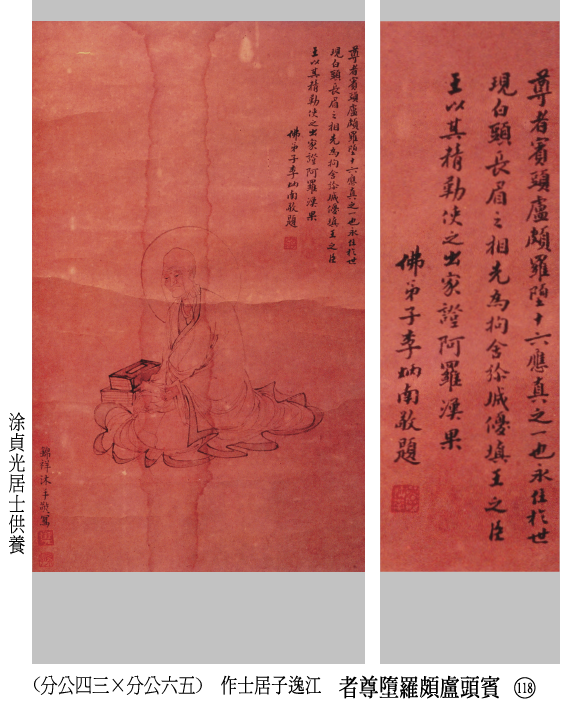 尊者賓頭盧頗羅墮十六應真之一也永住於世
現白頭長眉之相先為拘舍弥城優填王之臣
王以其精勤使之出家證阿羅漢果
佛弟子李炳南敬題
尊者賓頭盧頗羅墮十六應真之一也永住於世
現白頭長眉之相先為拘舍弥城優填王之臣
王以其精勤使之出家證阿羅漢果
佛弟子李炳南敬題
錦祥沐手敬寫
涂貞光居士供養
118 賓頭盧頗羅墮尊者 江逸子居士作（五六公分×三四公分）